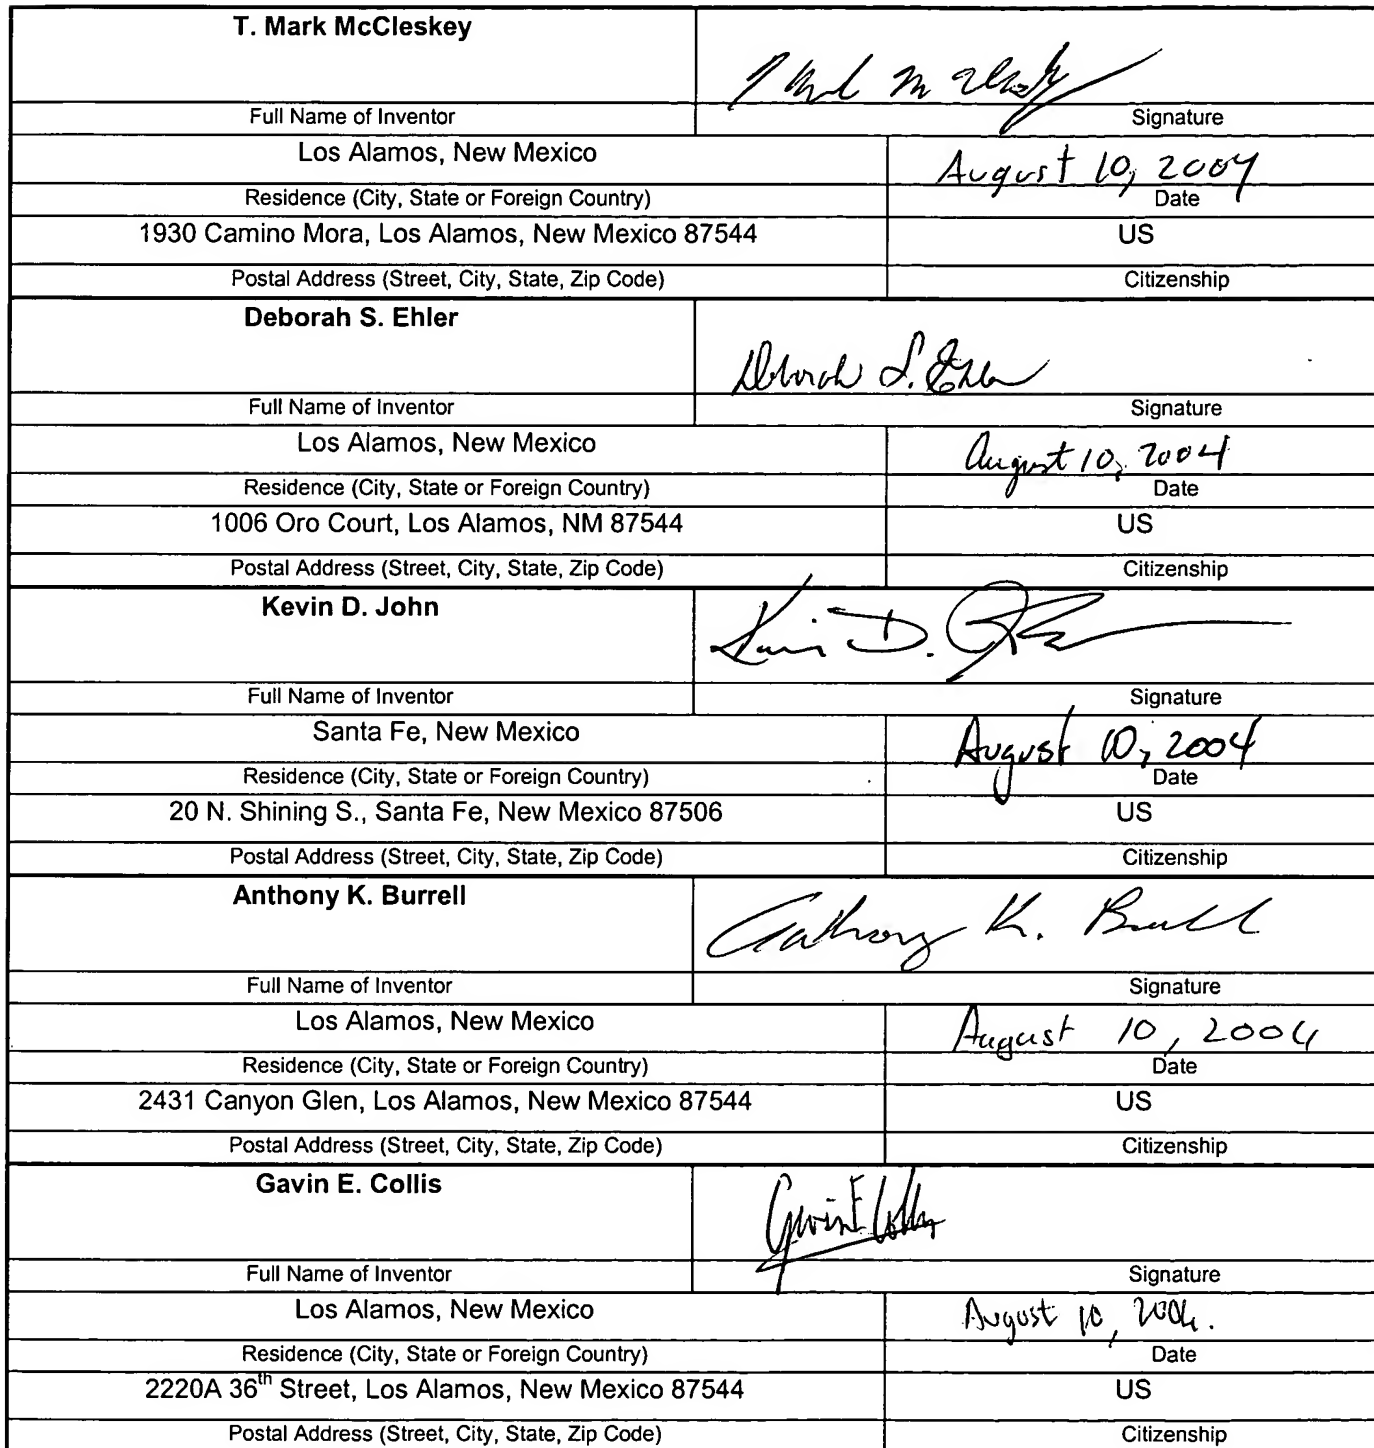 T. Mark McCleskey
Full Name of Inventor Signature
Los Alamos, New Mexico August 10, 2004
Residence (City, State or Foreign Country) Date
1930 Camino Mora, Los Alamos, New Mexico 87544 US
Postal Address (Street, City, State, Zip Code) Citizenship
Deborah S. Ehler Deborah S. Ehler
Full Name of Inventor Signature
Los Alamos, New Mexico August 10, 2004
Residence (City, State or Foreign Country) Date
1006 Oro Court, Los Alamos, NM 87544 US
Postal Address (Street, City, State, Zip Code) Citizenship
Kevin D. John Kevin D.
Full Name of Inventor Signature
Santa Fe, New Mexico August 10, 2004
Residence (City, State or Foreign Country) Date
20 N. Shining S., Santa Fe, New Mexico 87506 US
Postal Address (Street, City, State, Zip Code) Citizenship
Anthony K. Burrell Anthony K. Burrell
Full Name of Inventor Signature
Los Alamos, New Mexico August 10, 2004
Residence (City, State or Foreign Country) Date
2431 Canyon Glen, Los Alamos, New Mexico 87544 US
Postal Address (Street, City, State, Zip Code) Citizenship
Gavin E. Collis Gavin E Collis
Full Name of Inventor Signature
Los Alamos, New Mexico August 10, 2004.
Residence (City, State or Foreign Country) Date
2220A 36th Street, Los Alamos, New Mexico 87544 US
Postal Address (Street, City, State, Zip Code) Citizenship